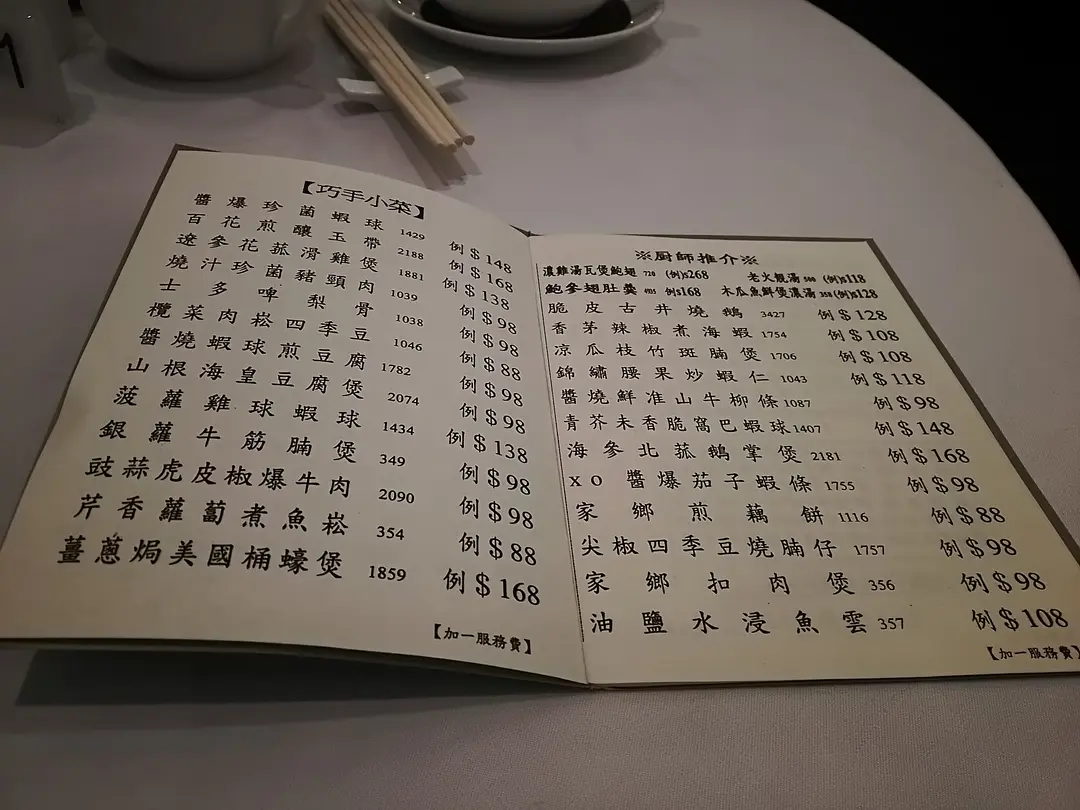 【巧手小菜】
醬爆珍菌蝦球 1429 例$148
百花煎釀玉帶 2188 例$168
遼參花菰滑雞煲 1881 例$138
燒汁珍菌豬頸肉 1039 例$98
士多啤梨骨 1038 例$98
欖菜肉崧四季豆 1046 例$88
醬燒蝦球煎豆腐 1782 例$98
山根海皇豆腐煲 2074 例$98
菠蘿雞球蝦球 1434 例$138
銀蘿牛筋腩煲 349 例$98
豉蒜虎皮椒爆牛肉 2090 例$98
芹香蘿蔔煮魚崧 354 例$88
薑蔥焗美國桶蠔煲 1859 例$168
【加一服務費】
※厨師推介※
濃雞湯瓦煲鮑翅 720 (例)$268 老火靚湯 (例)$118
鮑參翅肚羹 例$168 木瓜魚鮮煲濃湯 (例)$128
脆皮古井燒鵝 3427 例$128
香茅辣椒煮海蝦 1754 例$108
凉瓜枝竹斑腩煲 1706 例$108
錦繡腰果炒蝦仁 1043 例$118
醬燒鮮淮山牛柳條 1087 例$98
青芥末香脆窩巴蝦球 1407 例$148
海參北菰鵝掌煲 2181 例$168
XO醬爆茄子蝦條 1755 例$98
家鄉煎藕餅 1116 例$88
尖椒四季豆燒腩仔 1757 例$98
家鄉扣肉煲 356 例$98
油鹽水浸魚雲 357 例$108
【加一服務費】
1